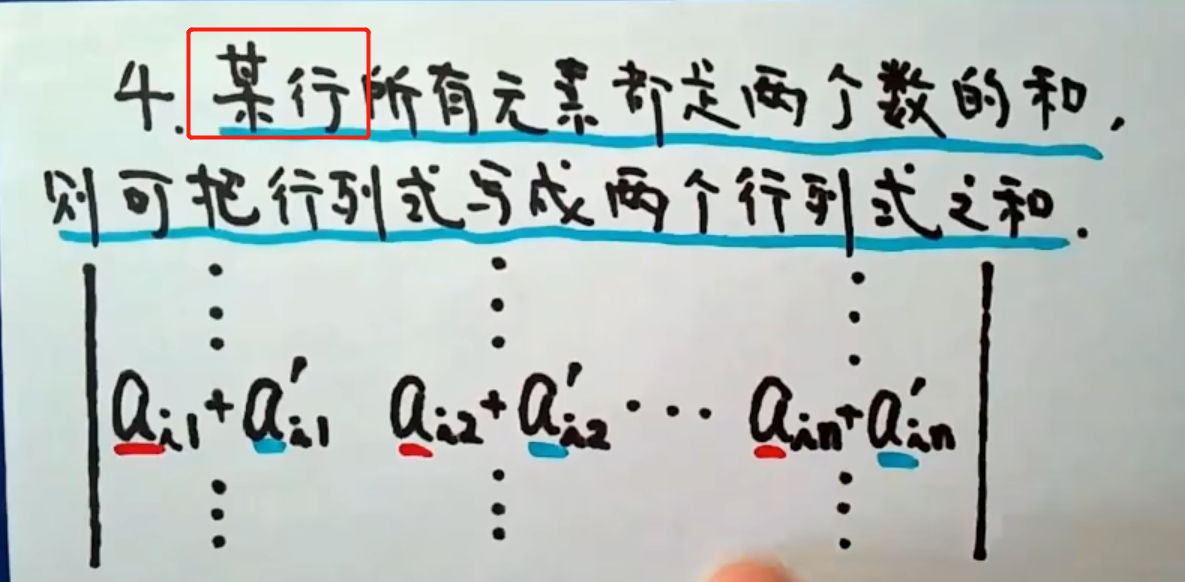 4. 某行所有元素都是两个数的和,
则可把行列式写成两个行列式之和.
a_{i1}+a'_{i1} a_{i2}+a'_{i2} ··· a_{in}+a'_{in}